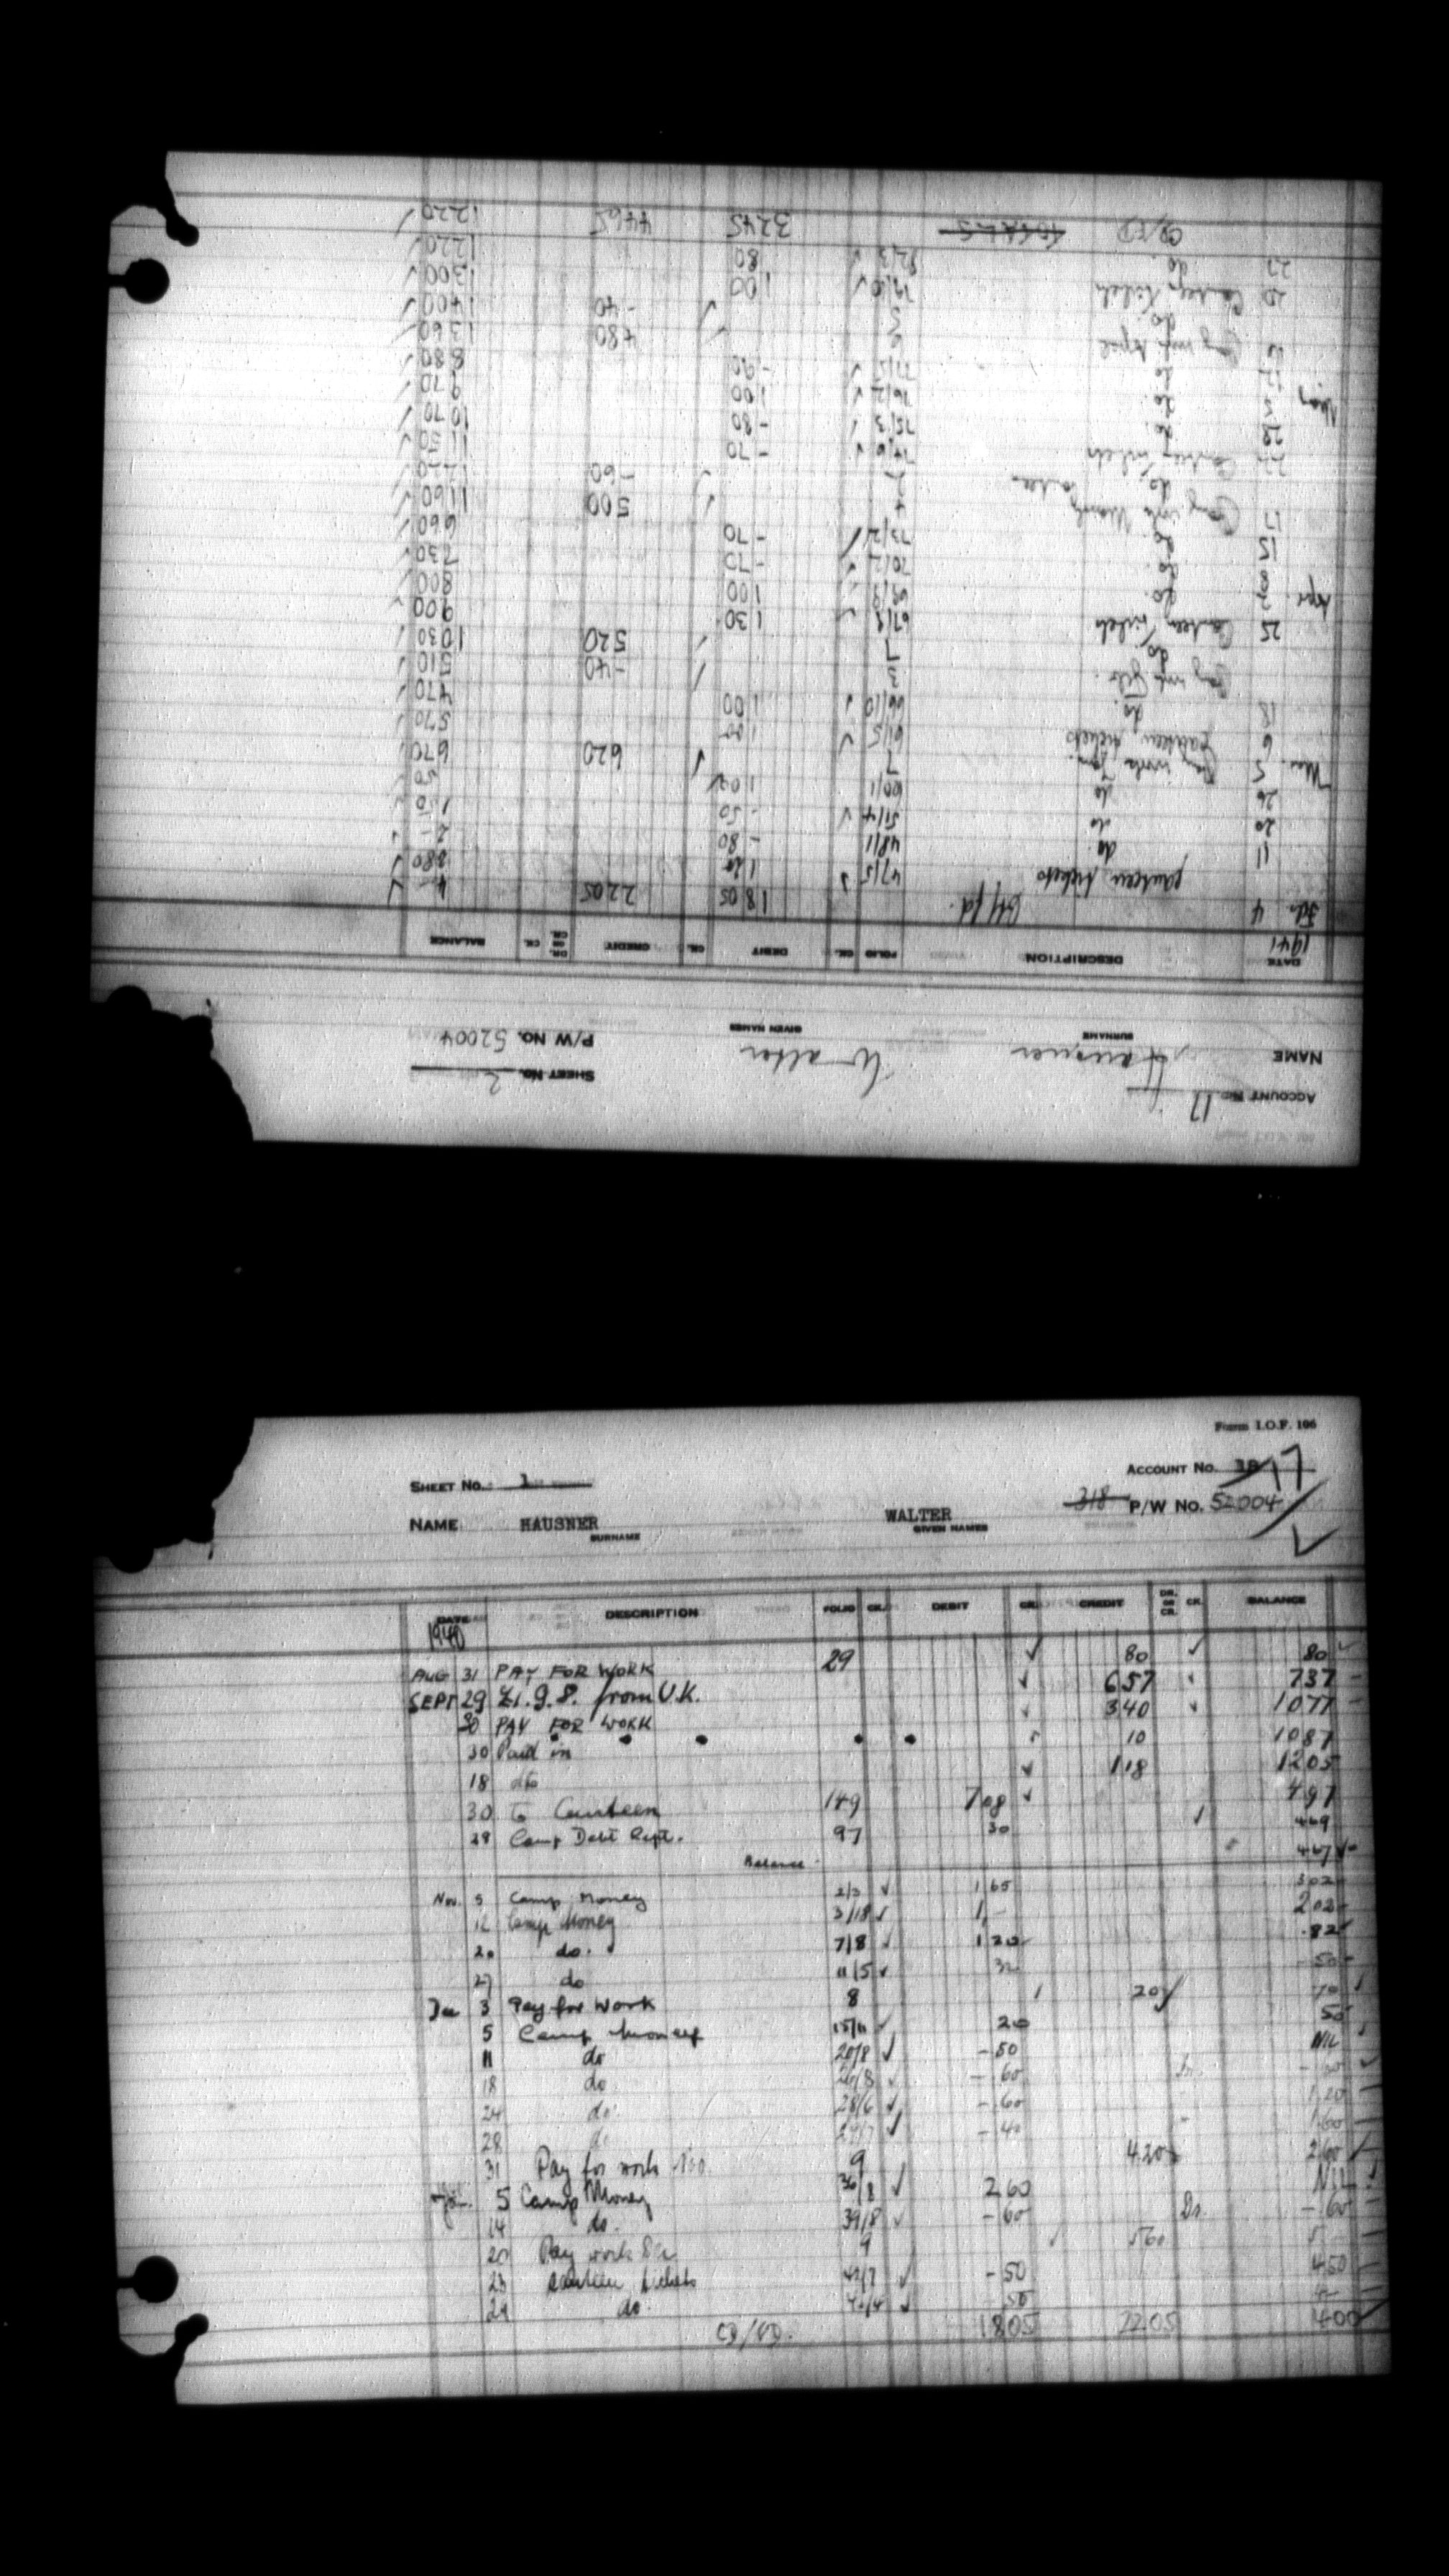 Form I.O.F. 106
SHEET No. 1 ACCOUNT No. 38 17
NAME HAUSNER WALTER 318 P/W No. 52004
SURNAME GIVEN NAMES
DATE DESCRIPTION FOLIO CK. DEBIT CK. CREDIT DR. OR CR. CK. BALANCE
1940
AUG 31 PAY FOR WORK 29 ✓ 80 ✓ 80
SEPT 29 £1.9.8. from U.K. ✓ 657 737
30 PAY FOR WORK 340 1077
30 Paid in 10 1087
18 dto ✓ 118 1205
30 to Canteen 149 708 ✓ 497
29 Camp Debt Rept. 97 30 ✓
Balance
Nov. 5 Camp Money 2/3 ✓ 1 65 302
12 Camp Money 3/18 ✓ 1,- 202
20 do. 7/8 ✓ 1 20 82
27 do 11/5 ✓ 32 50
Dec 3 Pay for work 8 20 70
5 Camp Money 15/11 20 50
11 do 20/8 ✓ - 50 NIL
18 do 26/8 ✓ - 60 Dr.
24 do. 28/6 ✓ - 60 1 20
28 do ✓ - 40 1 60
31 Pay for work Nov. 9 4 20 2 60
Jan. 5 Camp Money 36/8 ✓ 2 60 NIL
14 do. 39/8 ✓ - 60 Dr. - 60
20 Pay work Dec. 9 5 60 5
23 Canteen tickets ✓ - 50 4 50
29 do. ✓ 50 4 -
CD/FD. 18 05 22 05 4 00
ACCOUNT No. 17 SHEET No. 2
NAME Hausner Walter P/W No. 52004
SURNAME GIVEN NAMES
DATE DESCRIPTION FOLIO CK. DEBIT CK. CREDIT DR. OR CR. CK. BALANCE
1941
Bt/fd. 18 05 22 05 4 - ✓
Feb. 4 canteen tickets 47/5 ✓ 1 20 ✓
11 do. 48/1 - 80 2 -
20 do 51/4 ✓ - 50 1 50
26 do 1 00 50
Mar. 5 Pay work Jan. 7 ✓ 6 20 6 70
6 canteen tickets 61/5 ✓ 1 00 5 70
18 do. 66/10 ✓ 1 00 4 70
Pay wk Feb. 3 ✓ - 40 5 10
do 7 ✓ 5 20 10 30
25 Canteen Tickets 67/8 ✓ 1 30 9 00
Apr. do. 69/9 1 00 8 00
8 do. 70/2 ✓ - 70 7 30
15 do. 73/2 ✓ - 70 6 60
17 Pay wk March 4 ✓ 5 00 11 60
do. ✓ - 60
22 Canteen Tickets 74/6 ✓ - 70 11 50
28 do. 75/3 ✓ - 80 10 70
May do. 76/2 ✓ 1 00 9 70
do. 77/5 ✓ - 90 8 80
Pay wk April 3 ✓ 4 80 13 60
do 3 ✓ - 40 14 00
20 Canteen Tickets 79/10 ✓ 1 00 13 00
27 do. 82/3 ✓ 80 12 20
CD/FD TOTALS 32 45 44 65 12 20 ✓